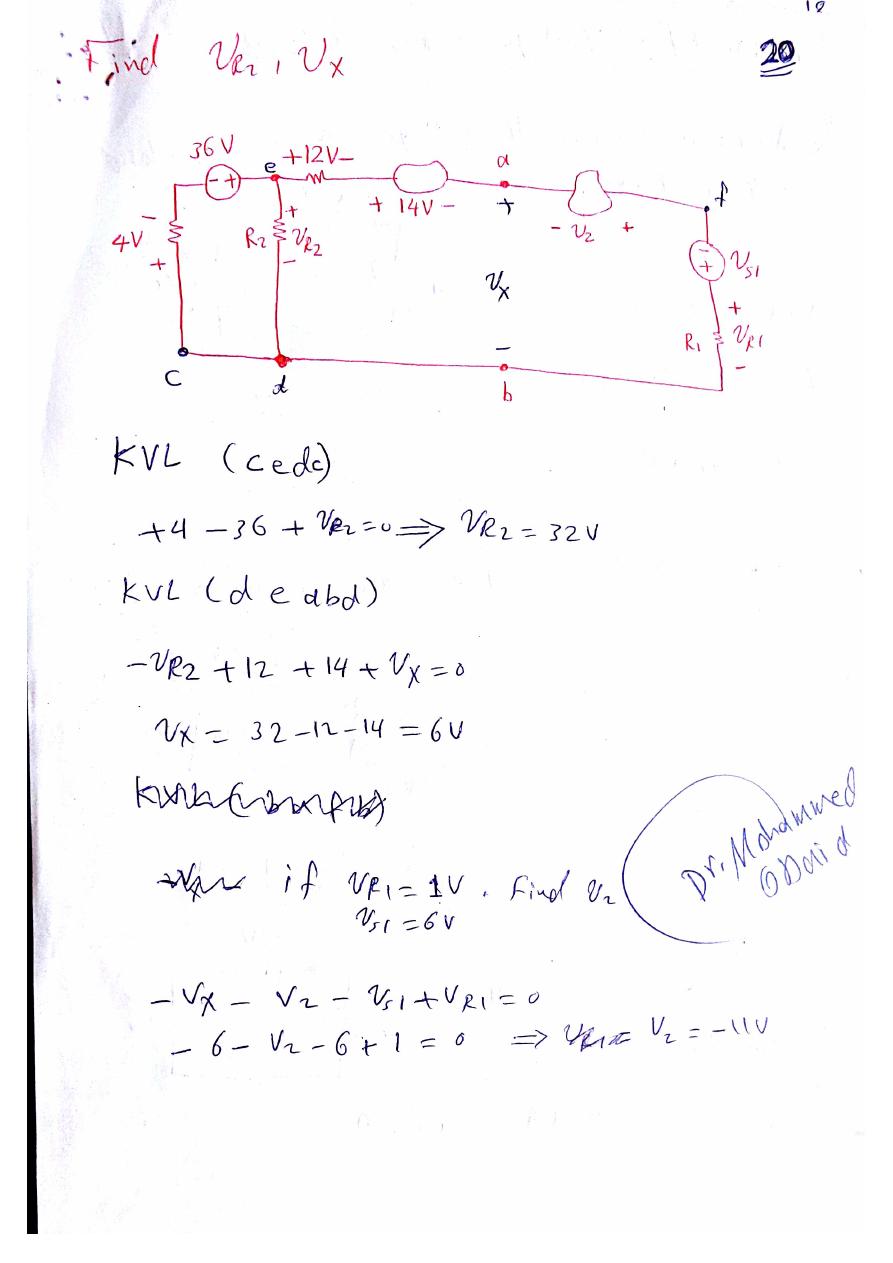 18
Find VR2, Vx
20
36 V
- +
e +12V-
a
f
+ 14V -
+
- V2 +
-
4V
+
R2
+
VR2
-
Vx
- +
VS1
+
R1 VR1
-
-
c
d
b
KVL (cedc)
+4 - 36 + VR2 = 0 ⇒ VR2 = 32V
KVL (d e abd)
-VR2 + 12 + 14 + Vx = 0
Vx = 32 - 12 - 14 = 6V
if VR1 = 1V . Find V2
VS1 = 6V
Dr. Mohammed
Obaid
- Vx - V2 - VS1 + VR1 = 0
- 6 - V2 - 6 + 1 = 0 ⇒ V2 = -11V